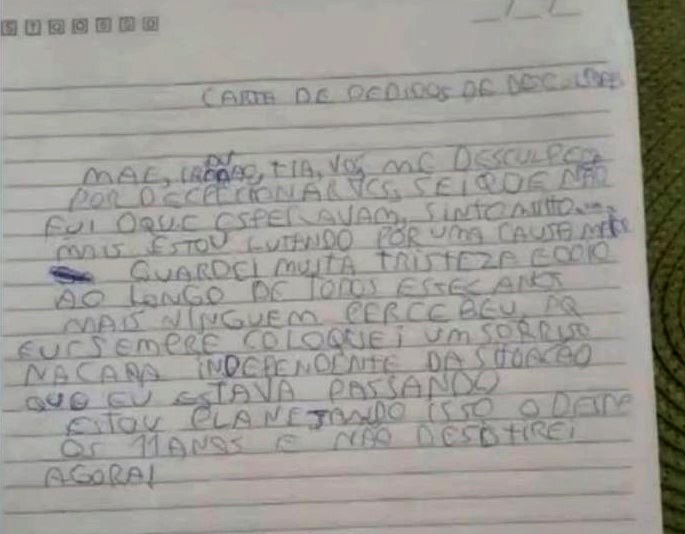 S T Q Q S S D
CARTA DE PEDIDOS DE DESCULPAS
MAE, IRMAO, TIA, VOS, ME DESCULPEM
POR DECEPCIONAR VCS, SEI QUE NÃO
FUI OQUE ESPERAVAM, SINTO MUITO
MAIS ESTOU LUTANDO POR UMA CAUSA
GUARDEI MUITA TRISTEZA E ODIO
AO LONGO DE TODOS ESSES ANOS
MAIS NINGUEM PERCEBEU, PQ
EU SEMPRE COLOQUEI UM SORRISO
NA CARA INDEPENDENTE DA SITUAÇÃO
QUE EU ESTAVA PASSANDO
ESTOU PLANEJANDO ISSO DESDE
OS 11 ANOS E NÃO DESISTIREI
AGORA!